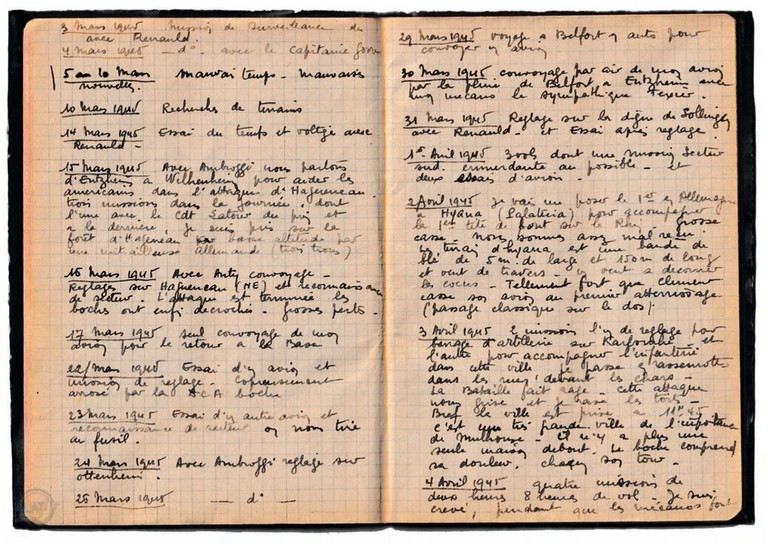 3 Mars 1945 Mission de surveillance de
avec Renauld.
4 Mars 1945 - d° - avec le Capitaine
5 au 10 Mars Mauvais temps - Mauvaises
nouvelles.
10 Mars 1945 Recherches de terrains
14 Mars 1945 Essai du temps et voltige avec
Renauld -
15 Mars 1945 Avec Ambroggi nous partons
d'Entzheim a Wilhenheim pour aider les
americains dans l'attaque d'Haguenau.
trois missions dans la journée, dont
l'une avec le Cdt Latour du pin et
a la dernière, je suis pris sur la
forêt d'Hagueneau par basse altitude par
une mitrailleuse allemande trois trous)
16 Mars 1945 Avec convoyage -
Reglages sur Hagueneau (NE) et reconnaissance
de secteur. L'attaque est terminée les
boches ont enfin decroché. grosses pertes.
17 Mars 1945 seul convoyage de mon
avion pour le retour a la Base
22/ Mars 1945 Essai d'un avion et
mission de reglage. Copieusement
arrosé par la D.C.A boche
23 Mars 1945 Essai d'un autre avion et
reconnaissance de secteur on nous tire
au fusil.
24 Mars 1945 Avec Ambroggi reglage sur
ottenheim.
25 Mars 1945 - d° -
29 Mars 1945 voyage a Belfort en auto pour
convoyer un avion
30 Mars 1945 convoyage par air de mon avion
par la pluie de Belfort a Entzheim avec
mon mecano le sympathique Texier.
31 Mars 1945 Reglage sur la digue de Sollingen
avec Renauld. et Essai après reglage.
1er Avril 1945 3 vols dont une mission Secteur
sud. emmerdante au possible. Et
deux essais d'avion.
2 Avril 1945 je vais me poser le 1er en Allemagne
a pour accompagner
la 1ère tête de pont sur le Rhin Grosse
casse - Nous sommes assez mal reçu.
Le terrain est une bande de
blé de 5m. de large et 150m de long
et vent de travers - un vent a decorner
les cocus - Tellement fort que Clement
casse son avion au premier atterrissage
(passage classique sur le dos)
3 Avril 1945 2 missions l'une de reglage pour
barrage d'artillerie sur Karlsruhe et
l'autre pour accompagner l'infanterie
dans cette ville je passe en rasemottes
dans les rues! devant les chars -
La Bataille fait rage cette attaque
nous grise et je rase les toits -
Bref la ville est prise a 11H 45
c'est une très grande ville de l'importance
de Mulhouse - Il n'y a plus une
seule maison debout. Le boche comprend
sa douleur. chacun son tour -
4 Avril 1945 quatre missions de
deux heures 8 heures de vol - Je suis
crevé, pendant que les mecanos font